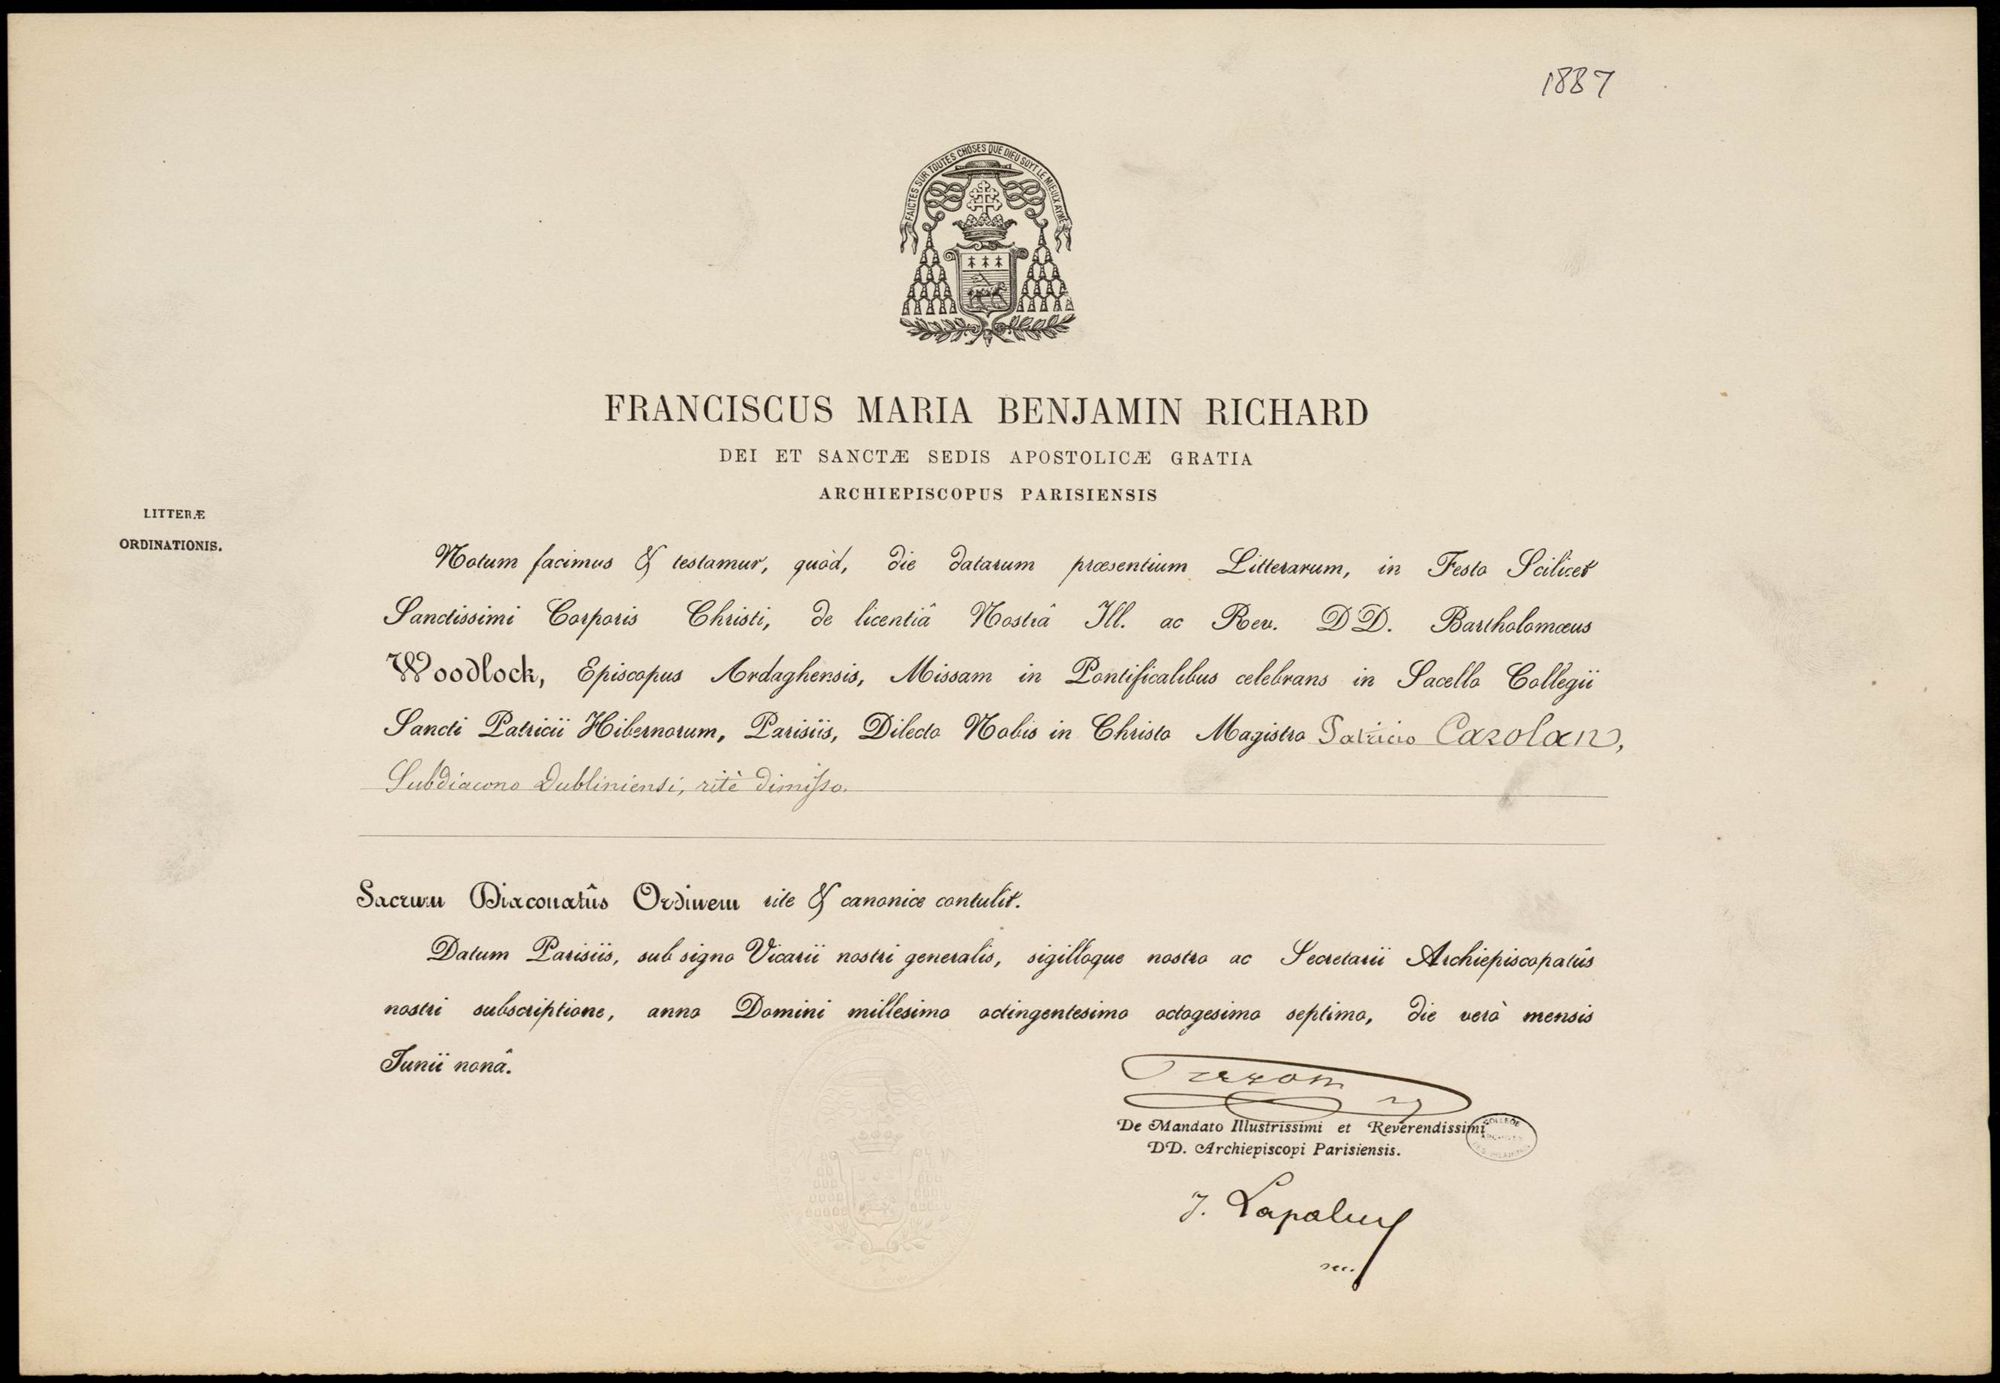 1887
FAICTES SUR TOUTES CHOSES QUE DIEU SOYT LE MIEUX AYMÉ
FRANCISCUS MARIA BENJAMIN RICHARD
DEI ET SANCTÆ SEDIS APOSTOLICÆ GRATIA
ARCHIEPISCOPUS PARISIENSIS
LITTERÆ
ORDINATIONIS.
Notum facimus & testamur, quòd, die datarum præsentium Litterarum, in Festo Scilicet
Sanctissimi Corporis Christi, de licentiâ Nostrâ Ill. ac Rev. DD. Bartholomœus
Woodlock, Episcopus Ardaghensis, Missam in Pontificalibus celebrans in Sacello Collegii
Sancti Patricii Hibernorum, Parisiis, Dilecto Nobis in Christo Magistro Patricio Carolan,
Subdiacono Dubliniensi, ritè dimisso.
Sacrum Diaconatûs Ordinem rite & canonice contulit.
Datum Parisiis, sub signo Vicarii nostri generalis, sigilloque nostro ac Secretarii Archiepiscopatûs
nostri subscriptione, anno Domini millesimo octingentesimo octogesimo septimo, die verò mensis
Junii nonâ.
De Mandato Illustrissimi et Reverendissimi
DD. Archiepiscopi Parisiensis.
COLLEGE
J.